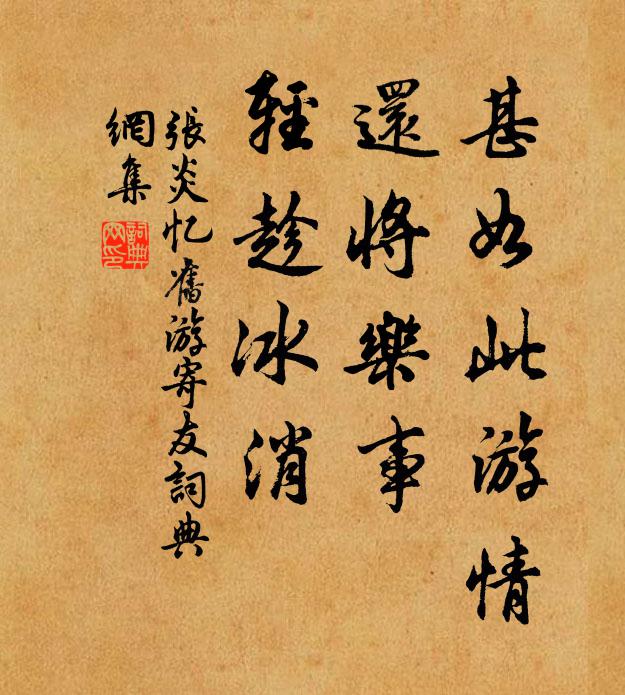 甚如此游情
還將樂事
輕趁冰消
張炎忆舊游寄友詞典
網集
詞典
网印